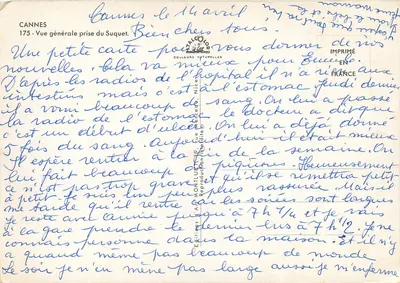 Cannes le 14 avril
CANNES
175 - Vue générale prise du Suquet.
Bien chers tous.
IMPRIMÉ EN FRANCE
COULEURS NATURELLES
Une petite carte pour vous donner de nos
nouvelles. Cela va mieux pour
D'après les radios de l'hôpital il n'a rien aux
intestins mais c'est à l'estomac. Jeudi dernier
il a vomi beaucoup de sang. On lui a passé
la radio de l'estomac, le docteur a dit que
c'est un début d'ulcère. On lui a déjà donné
5 fois du sang. Aujourd'hui il était mieux
Il espère rentrer à la fin de la semaine. On
lui fait beaucoup de piqûres. Heureusement
ce n'est pas trop grave et qu'il se remettra petit
à petit. Je suis un peu plus rassurée. Mais il
me tarde qu'il rentre car les soirées sont longues
Je reste avec jusqu'à 7 h 1/4 et je vais
à la gare prendre le dernier bus à 7 h 1/2. Je ne
connais personne dans la maison. Et il n'y
a quand même pas beaucoup de monde
Le soir je n'en mène pas large aussi je m'enferme